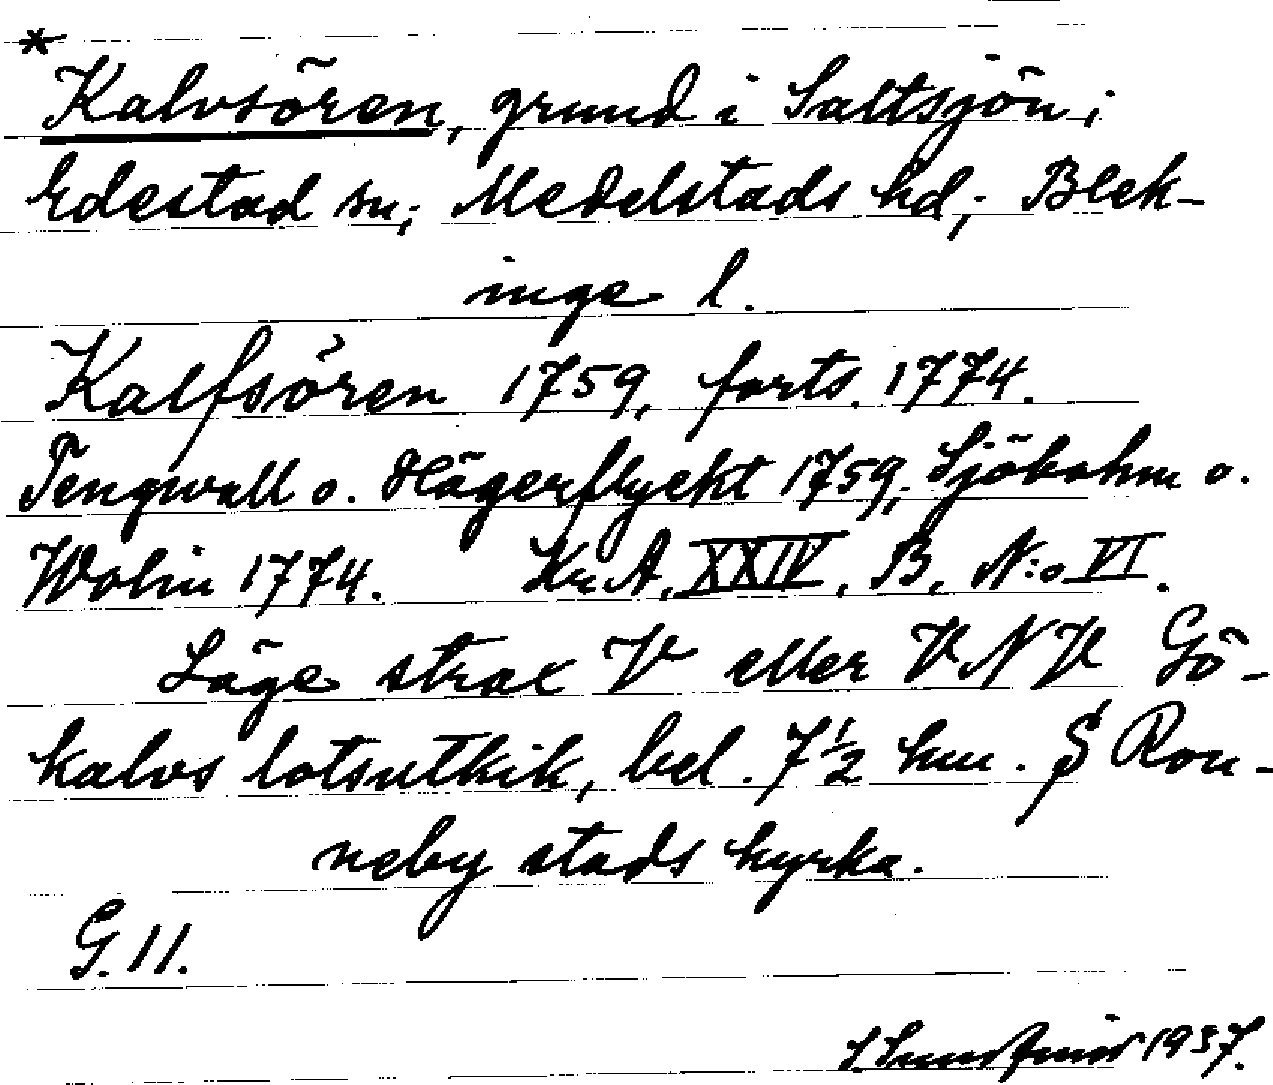 *
Kalvsören, grund i Saltsjön i
Edestad sn; Medelstads hd; Blek-
inge l.
Kalfsören 1759, forts. 1774.
Tengwall o. Hägerflyckt 1759, Sjöbohm o.
Wolin 1774. Kr.A. XXIV, B, N:o VI.
Läge strax V eller VNV Gö-
kalvs lotsutkik, bel. 7½ km. S Ron-
neby stads kyrka.
G. 11.
1937.